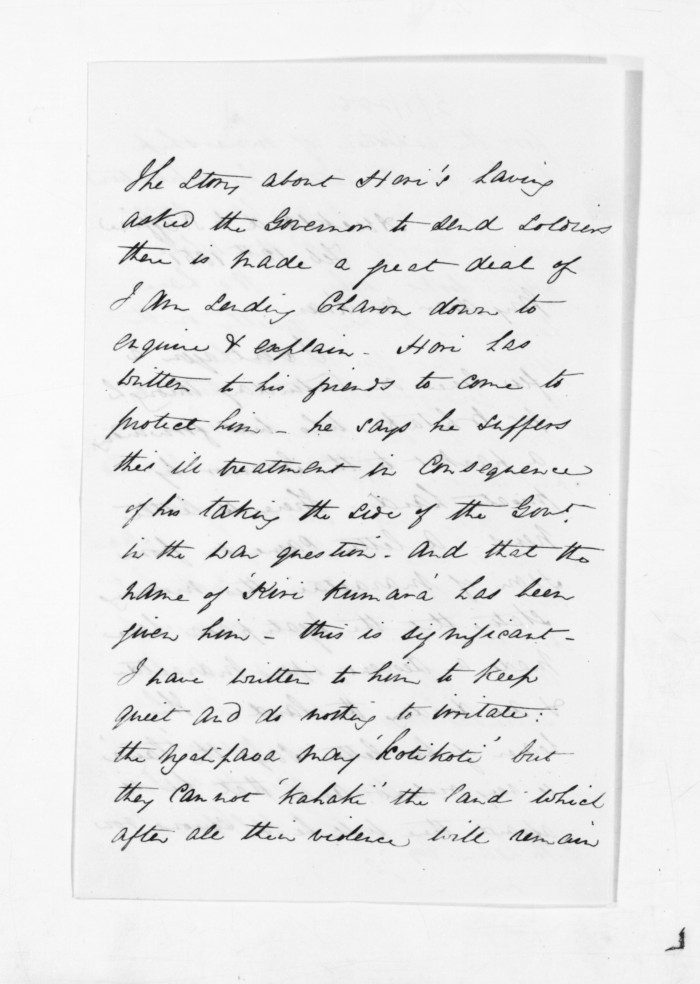 The story about Hori's having
asked the Governor to send soldiers
there is made a great deal of
I am sending Charon down to
enquire & explain - Hori has
written to his friends to come to
protect him - he says he suffers
this ill treatment in consequence
of his taking the side of the Govt.
in the war question - and that the
name of 'Kiri Kumara' has been
given him - this is significant -
I have written to him to keep
quiet and do nothing to irritate:
the Ngatipaoa may 'kotikoti' but
they cannot 'kahaki' the land which
after all their violence, will remain